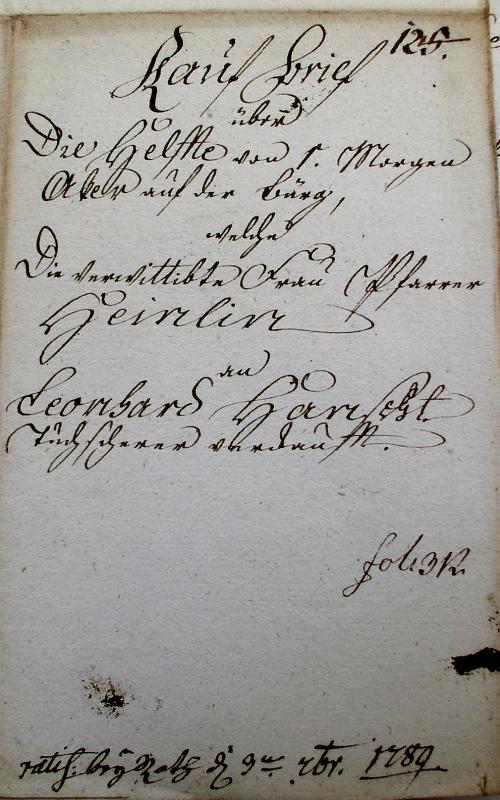 Kauf Brief 125.
über
Die Helffte von 1. Morgen
Aker auf der bürg,
welche
Die verwittibte Frau Pfarrer
Heinlin
an
Leonhard
Tuchscherer verkaufft.
fol:
ratif: beÿ Rath d. 3ten 7br. 1789.